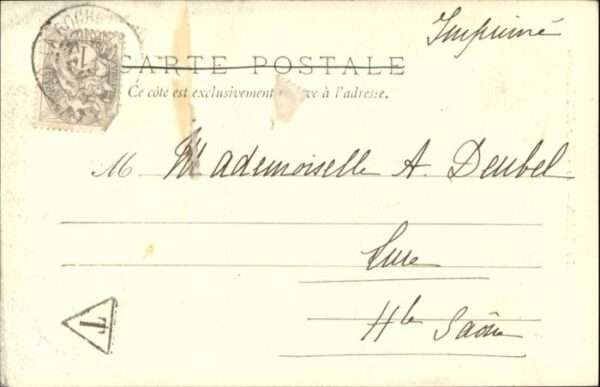 Imprimé
CARTE POSTALE
Ce côté est exclusivement à l'adresse.
M Mademoiselle A. Deubel
Lure
Hte Saône
T